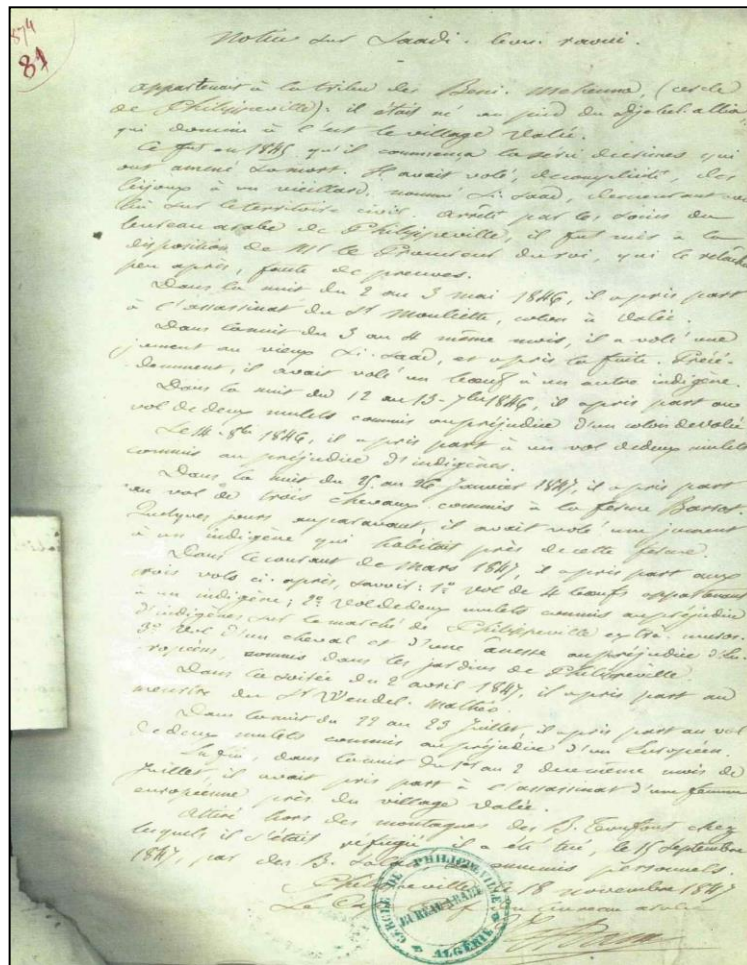 874
81
Notice sur Saadi-
appartenant à la tribu des Beni-Mehenna, (cercle
de Philippeville); il était né au pied du djebel
qui domine à l'est le village Valée.
Ce fut en 1845 qu'il commença la série de crimes qui
ont amené sa mort. Il avait volé, de complicité, des
bijoux à un vieillard, nommé Si-Saad, demeurant
sur le territoire civil. Arrêté par les soins du
bureau arabe de Philippeville, il fut mis à la
disposition de Mr le Procureur du roi, qui le relâcha
peu après, faute de preuves.
Dans la nuit du 2 au 3 mai 1846, il a pris part
à l'assassinat du Sr colon à Valée.
Dans la nuit du 3 au 4 même mois, il a volé une
jument au vieux Si-Saad, et a pris la fuite. Précé-
demment, il avait volé un bœuf à un autre indigène.
Dans la nuit du 12 au 13 7bre 1846, il a pris part au
vol de deux mulets commis au préjudice d'un colon de Valée
Le 14 8bre 1846, il a pris part à un vol de deux mulets
commis au préjudice d'indigènes.
Dans la nuit du 25 au 26 Janvier 1847, il a pris part
au vol de trois chevaux commis à la ferme Barrot.
Quelques jours auparavant, il avait volé une jument
à un indigène qui habitait près de cette ferme.
Dans le courant de mars 1847, il a pris part aux
trois vols ci-après, savoir: 1° vol de 4 bœufs appartenant
à un indigène; 2° Vol de deux mulets commis au préjudice
d'indigènes sur le marché de Philippeville extra-muros.
3° Vol d'un cheval et d'une ânesse au préjudice d'Eu-
ropéens, commis dans les jardins de Philippeville.
Dans la soirée du 2 avril 1847, il a pris part au
meurtre du Sr Wendel-Mathéo.
Dans la nuit du 22 au 23 Juillet, il a pris part au vol
de deux mulets commis au préjudice d'un Européen.
Enfin, dans la nuit du 1er au 2 du même mois de
Juillet, il avait pris part à l'assassinat d'une femme
européenne près du village Valée.
Attiré hors des montagnes des B. Toufout chez
lesquels il s'était réfugié, il a été tué, le 15 Septembre
1847, par des B. ennemis personnels.
Philippeville, le 18 novembre 1847
Le chef du bureau arabe
CERCLE DE PHILIPPEVILLE
BUREAU ARABE
ALGÉRIE